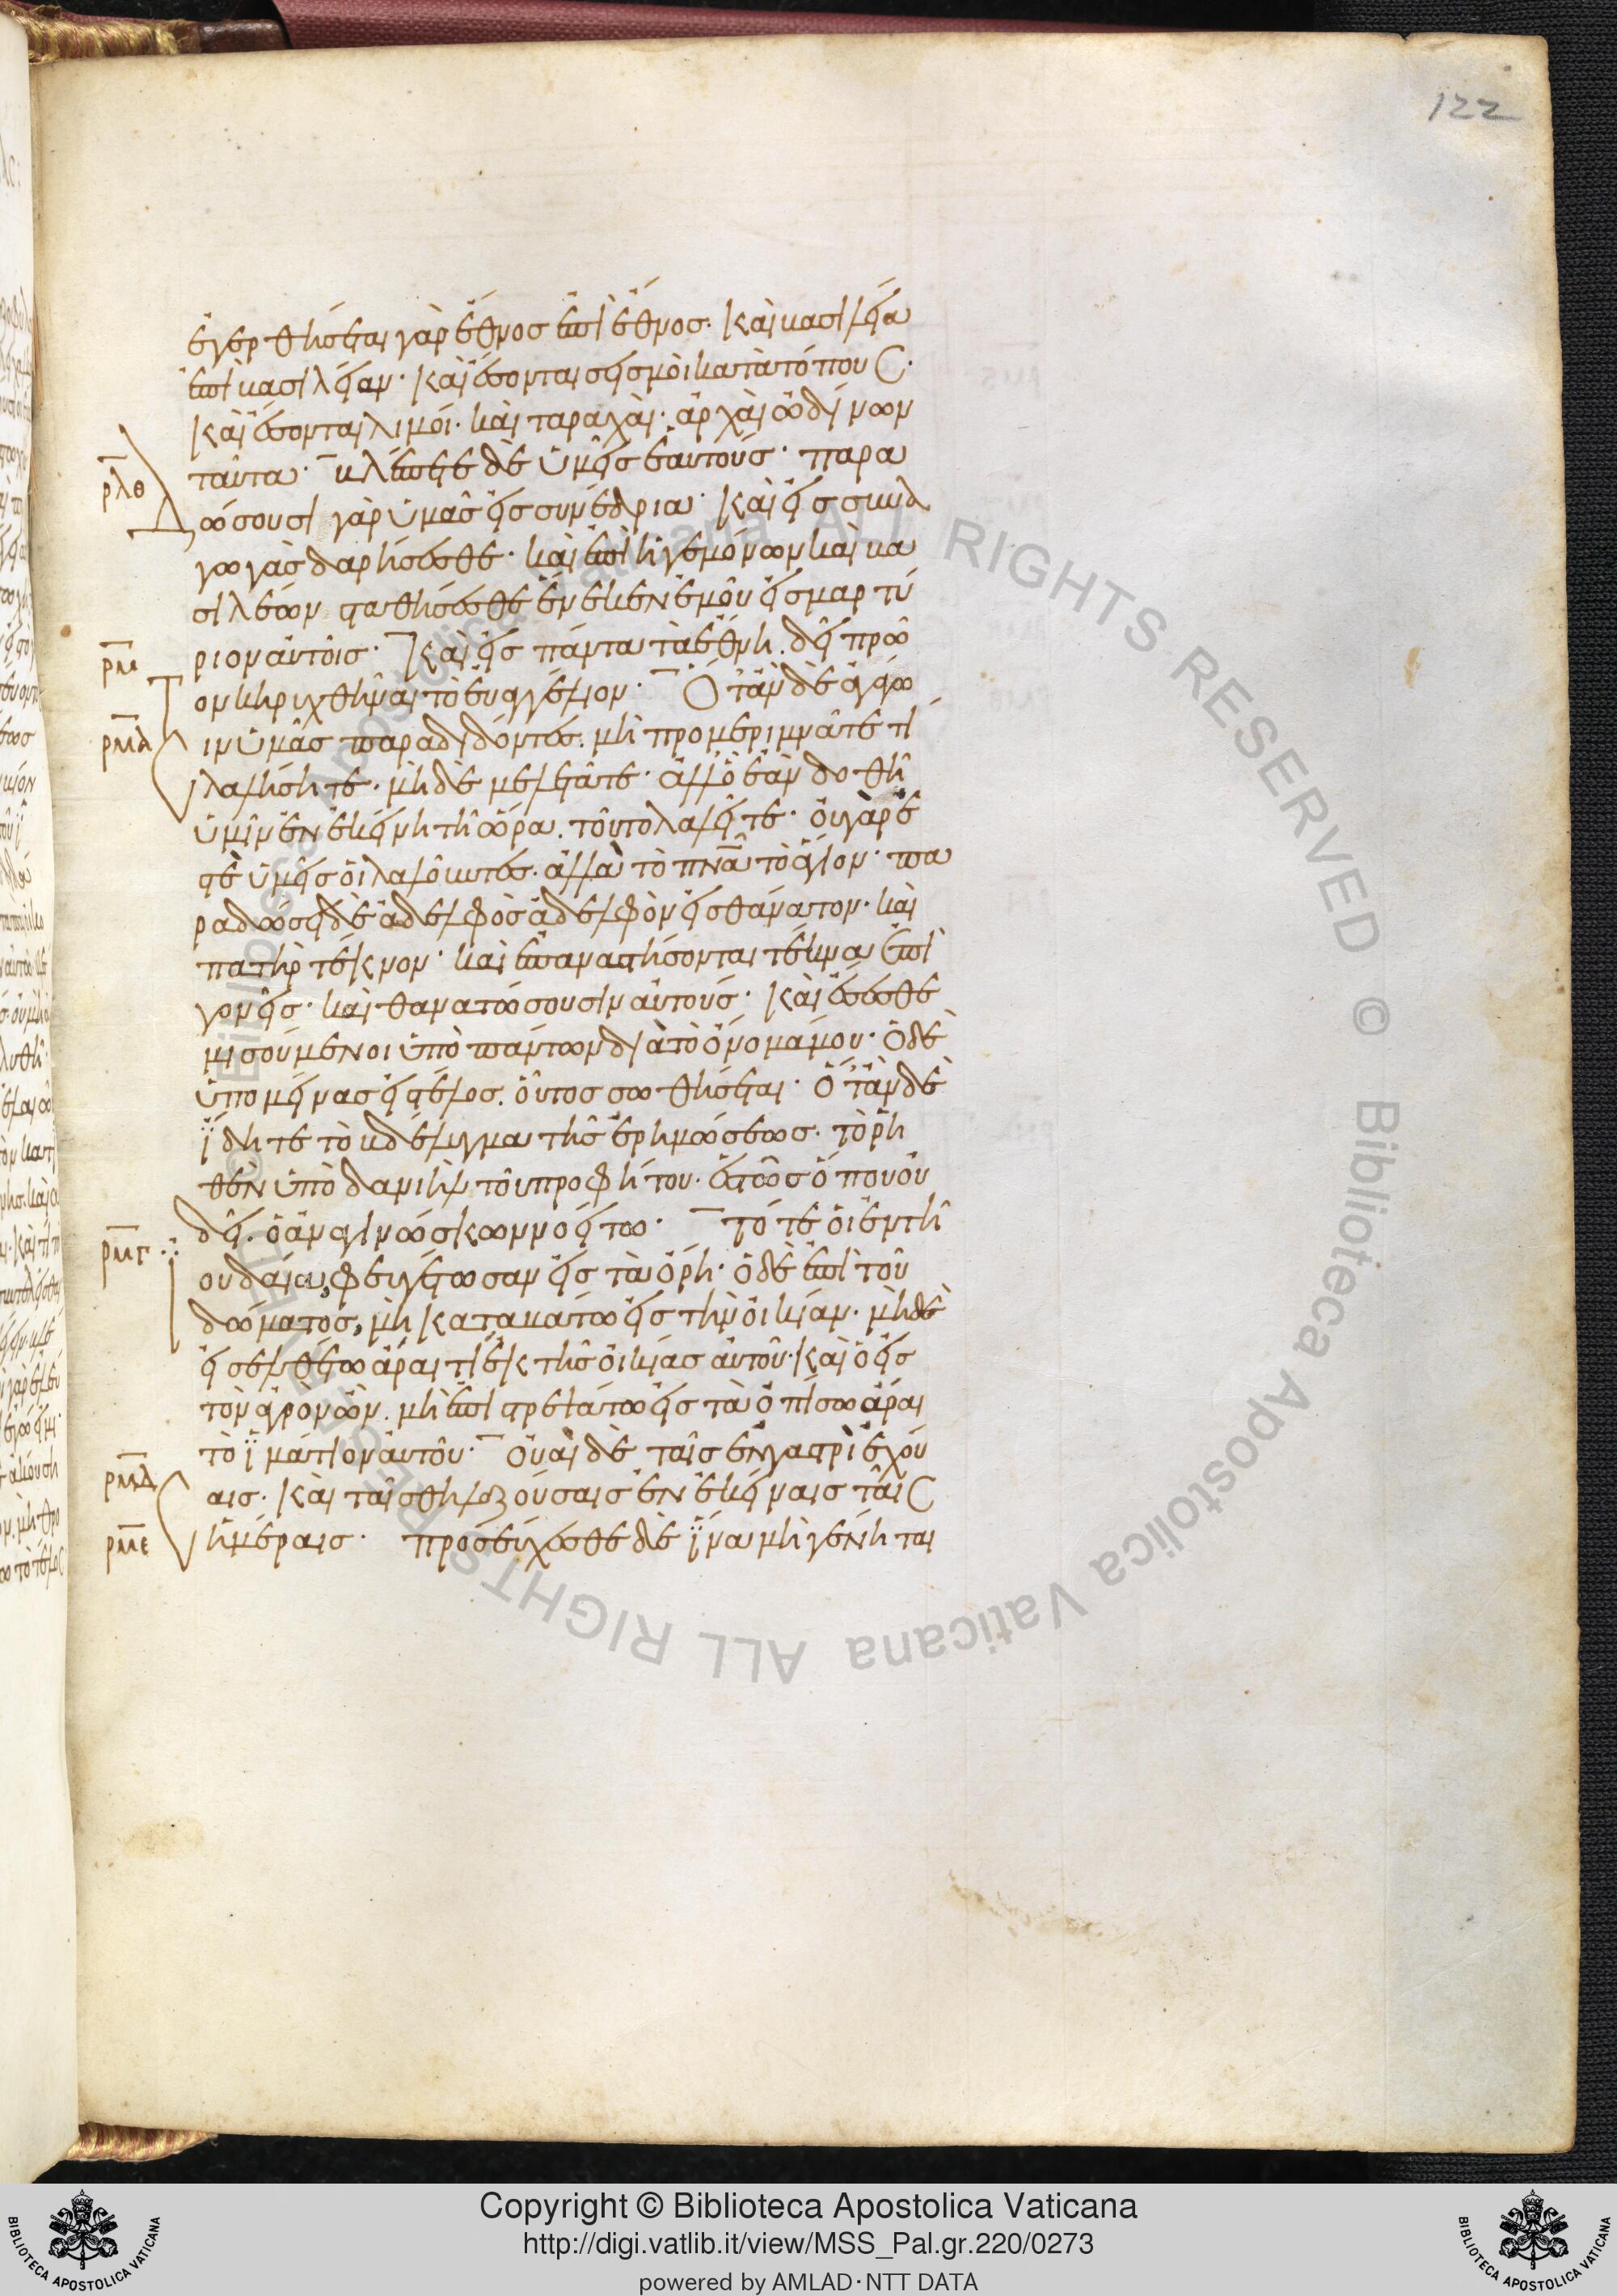 122
ἐγερθήσεται γὰρ ἔθνος ἐπὶ ἔθνος· καὶ βασιλεία
ἐπὶ βασιλείαν· καὶ ἔσονται σεισμοὶ κατὰ τόπους·
καὶ ἔσονται λιμοί· καὶ ταραχαί· ἀρχαὶ ὠδίνων
ταῦτα· βλέπετε δὲ ὑμεῖς ἑαυτούς· παρα
ρλθ
δώσουσι γὰρ ὑμᾶς εἰς συνέδρια· καὶ εἰς συνα
γωγὰς δαρήσεσθε· καὶ ἐπὶ ἡγεμόνων καὶ βα
σιλέων σταθήσεσθε ἕνεκεν ἐμοῦ εἰς μαρτύ
ρμ
ριον αὐτοῖς· καὶ εἰς πάντα τὰ ἔθνη. δεῖ πρῶ
τον κηρυχθῆναι τὸ εὐαγγέλιον· Ὅταν δὲ ἀγάγω
ρμα
σιν ὑμᾶς παραδιδόντες. μὴ προμεριμνᾶτε τί
λαλήσητε. μηδὲ μελετᾶτε· ἀλλ' ὃ ἐὰν δοθῆ
ὑμῖν ἐν ἐκείνη τῆ ὥρα. τοῦτο λαλεῖτε· οὐ γάρ ἐ
στε ὑμεῖς οἱ λαλοῦντες. ἀλλὰ τὸ πνα τὸ ἅγιον· πα
ραδώσει δὲ ἀδελφὸς ἀδελφὸν εἰς θάνατον· καὶ
πατὴρ τέκνον· καὶ ἐπαναστήσονται τέκνα ἐπὶ
γονεῖς· καὶ θανατώσουσιν αὐτούς· καὶ ἔσεσθε
μισούμενοι ὑπὸ πάντων διὰ τὸ ὄνομά μου· ὁ δὲ
ὑπομείνας εἰς τέλος. οὗτος σωθήσεται· Ὅταν δὲ
ἴδητε τὸ βδέλυγμα τῆς ἐρημώσεως. τὸ ῥη
θὲν ὑπὸ δανιὴλ τοῦ προφήτου. ἑστὼς ὅπου οὐ
δεῖ. ὁ ἀναγινώσκων νοείτω· τότε οἱ ἐν τῆ
ρμγ
ἰουδαία, φευγέτωσαν εἰς τὰ ὄρη· ὁ δὲ ἐπὶ τοῦ
δώματος, μὴ καταβάτω εἰς τὴν οἰκίαν· μηδὲ
εἰσελθέτω ἆραι τὶ ἐκ τῆς οἰκίας αὐτοῦ· καὶ ὁ εἰς
τὸν ἀγρὸν ὢν. μὴ ἐπιστρεψάτω εἰς τὰ ὀπίσω ἆραι
τὸ ἱμάτιον αὐτοῦ· οὐαὶ δὲ ταῖς ἐν γαστρὶ ἐχού
ρμδ
σαις. καὶ ταῖς θηλαζούσαις ἐν ἐκείναις ταῖς
ρμε
ἡμέραις· προσεύχεσθε δὲ ἵνα μὴ γένηται
Copyright © Biblioteca Apostolica Vaticana
http://digi.vatlib.it/view/MSS_Pal.gr.220/0273
powered by AMLAD·NTT DATA